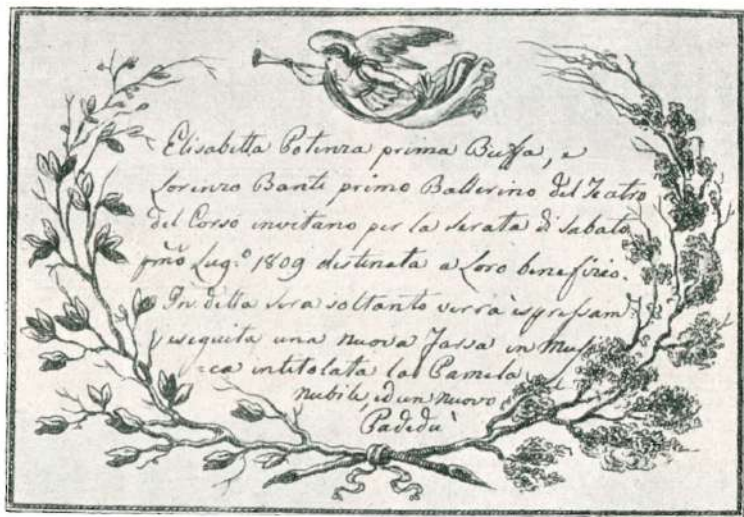 Elisabetta Potenza prima Buffa, e
Lorenzo Banti primo Ballerino del Teatro
del Corso invitano per la serata di sabato
pmo Lug.o 1809 destinata a Loro benefizio.
In detta sera soltanto verrà espressam.e
eseguita una nuova Farsa in Mus
ica intitolata la Pamela
nubile, ed un nuovo
Padedù